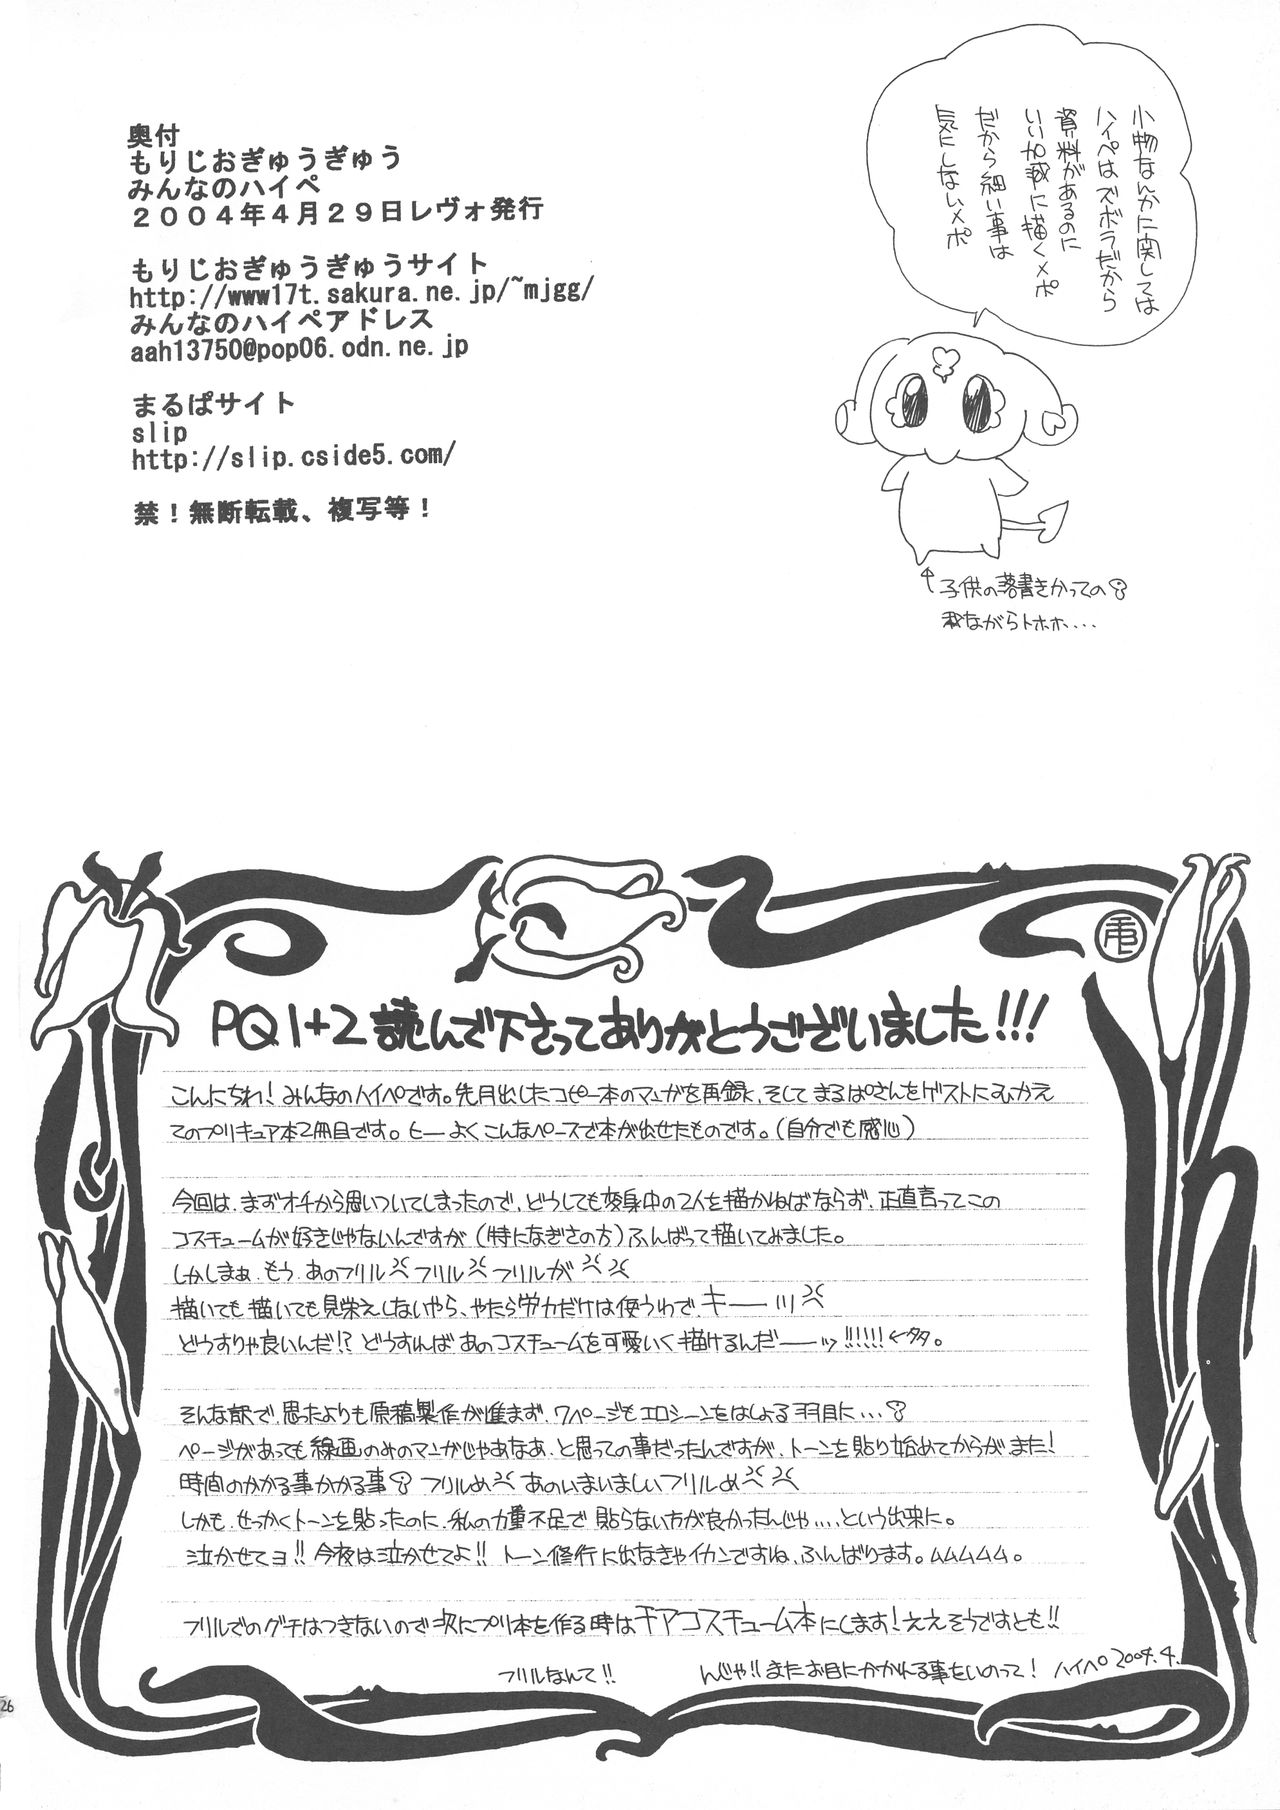 奥付
もりじおぎゅうぎゅう
みんなのハイペ
2004年4月29日レヴォ発行
もりじおぎゅうぎゅうサイト
http://www17t.sakura.ne.jp/~mjgg/
みんなのハイペアドレス
aah13750@pop06.odn.ne.jp
まるぱサイト
slip
http://slip.cside5.com/
禁！無断転載、複写等！
小物なんかに関しては
ハイペはズボラだから
資料があるのに
いい加減に描くメポ
だから細い事は
気にしないメポ
子供の落書きかっての
我ながらトホホ...
PQ1+2読んで下さってありがとうございました!!!
こんにちわ!みんなのハイペです。先月出したコピー本のマンガを再録、そしてまるぱさんをゲストにむかえ
てのプリキュア本2冊目です。ヒーよくこんなペースで本が出せたものです。(自分でも感心)
今回は、まずオチから思いついてしまったので、どうしても変身中の2人を描かねばならず、正直言ってこの
コスチュームが好きじゃないんですが(特になぎさの方)ふんばって描いてみました。
しかしまぁ、もう、あのフリルフリルフリルが
描いても描いても見栄えしないやら、やたら労力だけは使うわで、キーーッ
どうすりゃ良いんだ!?どうすればあのコスチュームを可愛いく描けるんだーーッ!!!!!!←多。
そんな訳で、思ったよりも原稿製作が進まず、7ページもエロシーンをはしょる羽目に...
ページがあっても線画のみのマンガじゃあなあ、と思っての事だったんですが、トーンを貼り始めてからがまた!
時間のかかる事かかる事 フリルめ あのいまいましいフリルめ
しかも、せっかくトーンを貼ったのに、私の力量不足で貼らない方が良かったんじゃ....という出来に。
泣かせてヨ!!今夜は泣かせてよ!!トーン修行に出なきゃイカンですね、ふんばります。ムムムムム。
フリルでのグチはつきないので次にプリ本を作る時はチアコスチューム本にします!ええそうですとも!!
フリルなんて!!
んじゃ!!またお目にかかれる事をいのって! ハイペ 2004.4.
26